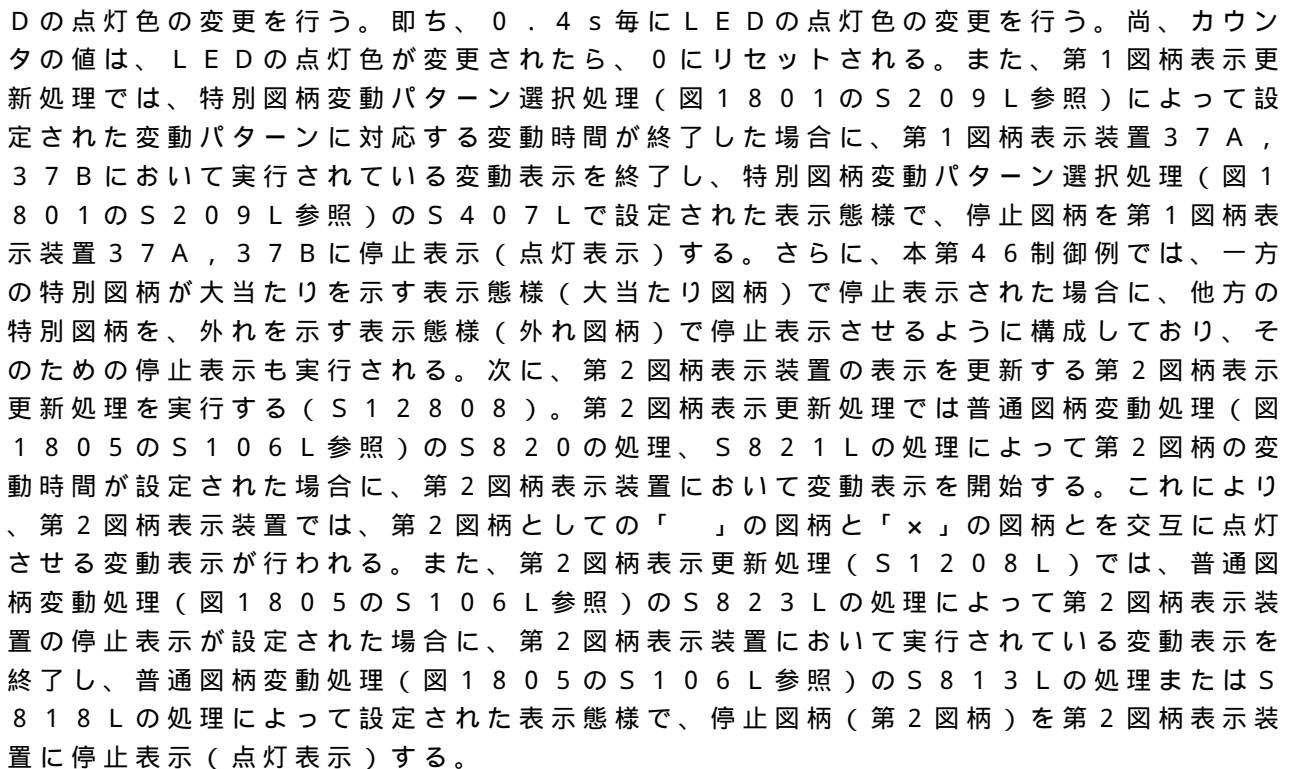 Ｄの点灯色の変更を行う。即ち、０．４ｓ毎にＬＥＤの点灯色の変更を行う。尚、カウン
タの値は、ＬＥＤの点灯色が変更されたら、０にリセットされる。また、第１図柄表示更
新処理では、特別図柄変動パターン選択処理（図１８０１のＳ２０９Ｌ参照）によって設
定された変動パターンに対応する変動時間が終了した場合に、第１図柄表示装置３７Ａ，
３７Ｂにおいて実行されている変動表示を終了し、特別図柄変動パターン選択処理（図１
８０１のＳ２０９Ｌ参照）のＳ４０７Ｌで設定された表示態様で、停止図柄を第１図柄表
示装置３７Ａ，３７Ｂに停止表示（点灯表示）する。さらに、本第４６制御例では、一方
の特別図柄が大当たりを示す表示態様（大当たり図柄）で停止表示された場合に、他方の
特別図柄を、外れを示す表示態様（外れ図柄）で停止表示させるように構成しており、そ
のための停止表示も実行される。次に、第２図柄表示装置の表示を更新する第２図柄表示
更新処理を実行する（Ｓ１２８０８）。第２図柄表示更新処理では普通図柄変動処理（図
１８０５のＳ１０６Ｌ参照）のＳ８２０の処理、Ｓ８２１Ｌの処理によって第２図柄の変
動時間が設定された場合に、第２図柄表示装置において変動表示を開始する。これにより
、第２図柄表示装置では、第２図柄としての「　」の図柄と「×」の図柄とを交互に点灯
させる変動表示が行われる。また、第２図柄表示更新処理（Ｓ１２０８Ｌ）では、普通図
柄変動処理（図１８０５のＳ１０６Ｌ参照）のＳ８２３Ｌの処理によって第２図柄表示装
置の停止表示が設定された場合に、第２図柄表示装置において実行されている変動表示を
終了し、普通図柄変動処理（図１８０５のＳ１０６Ｌ参照）のＳ８１３Ｌの処理またはＳ
８１８Ｌの処理によって設定された表示態様で、停止図柄（第２図柄）を第２図柄表示装
置に停止表示（点灯表示）する。